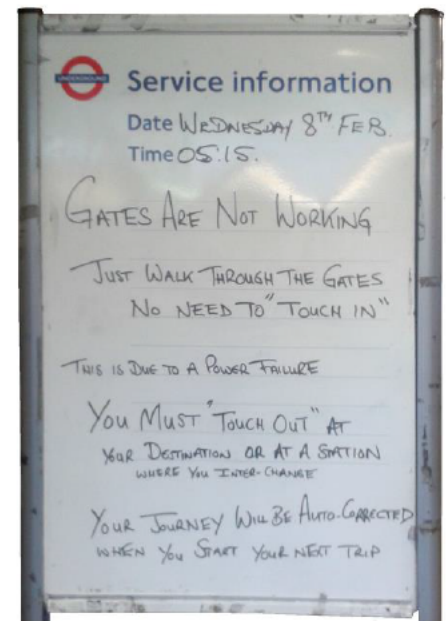 UNDERGROUND
Service information
Date WEDNESDAY 8TH FEB.
Time 05:15.
GATES ARE NOT WORKING
JUST WALK THROUGH THE GATES
NO NEED TO "TOUCH IN"
THIS IS DUE TO A POWER FAILURE
YOU MUST "TOUCH OUT" AT
YOUR DESTINATION OR AT A STATION
WHERE YOU INTER-CHANGE
YOUR JOURNEY WILL BE AUTO-CORRECTED
WHEN YOU START YOUR NEXT TRIP